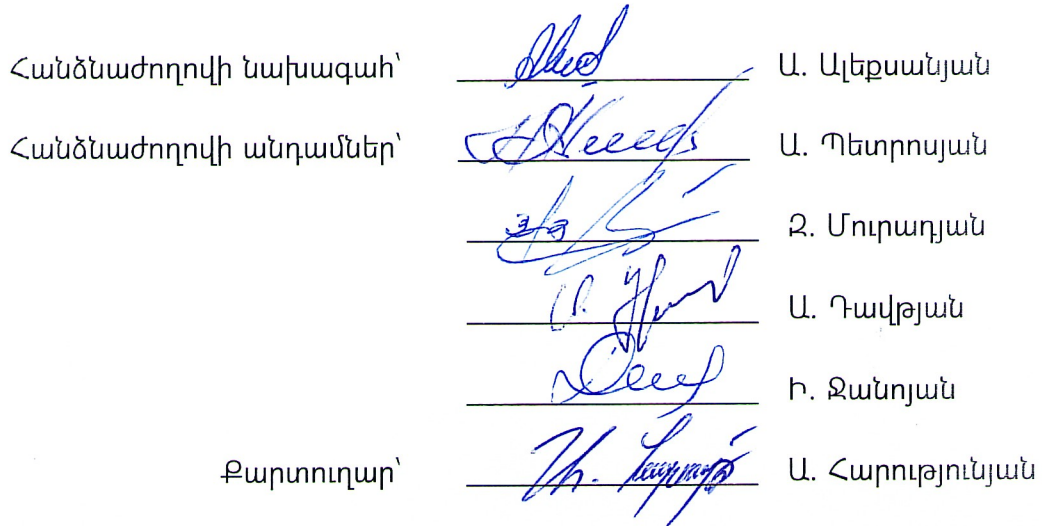 Հանձնաժողովի նախագահ՝ Ա. Ալեքսանյան
Հանձնաժողովի անդամներ՝ Ա. Պետրոսյան
Զ. Մուրադյան
Ա. Դավթյան
Ի. Ջանոյան
Քարտուղար՝ Ա. Հարությունյան